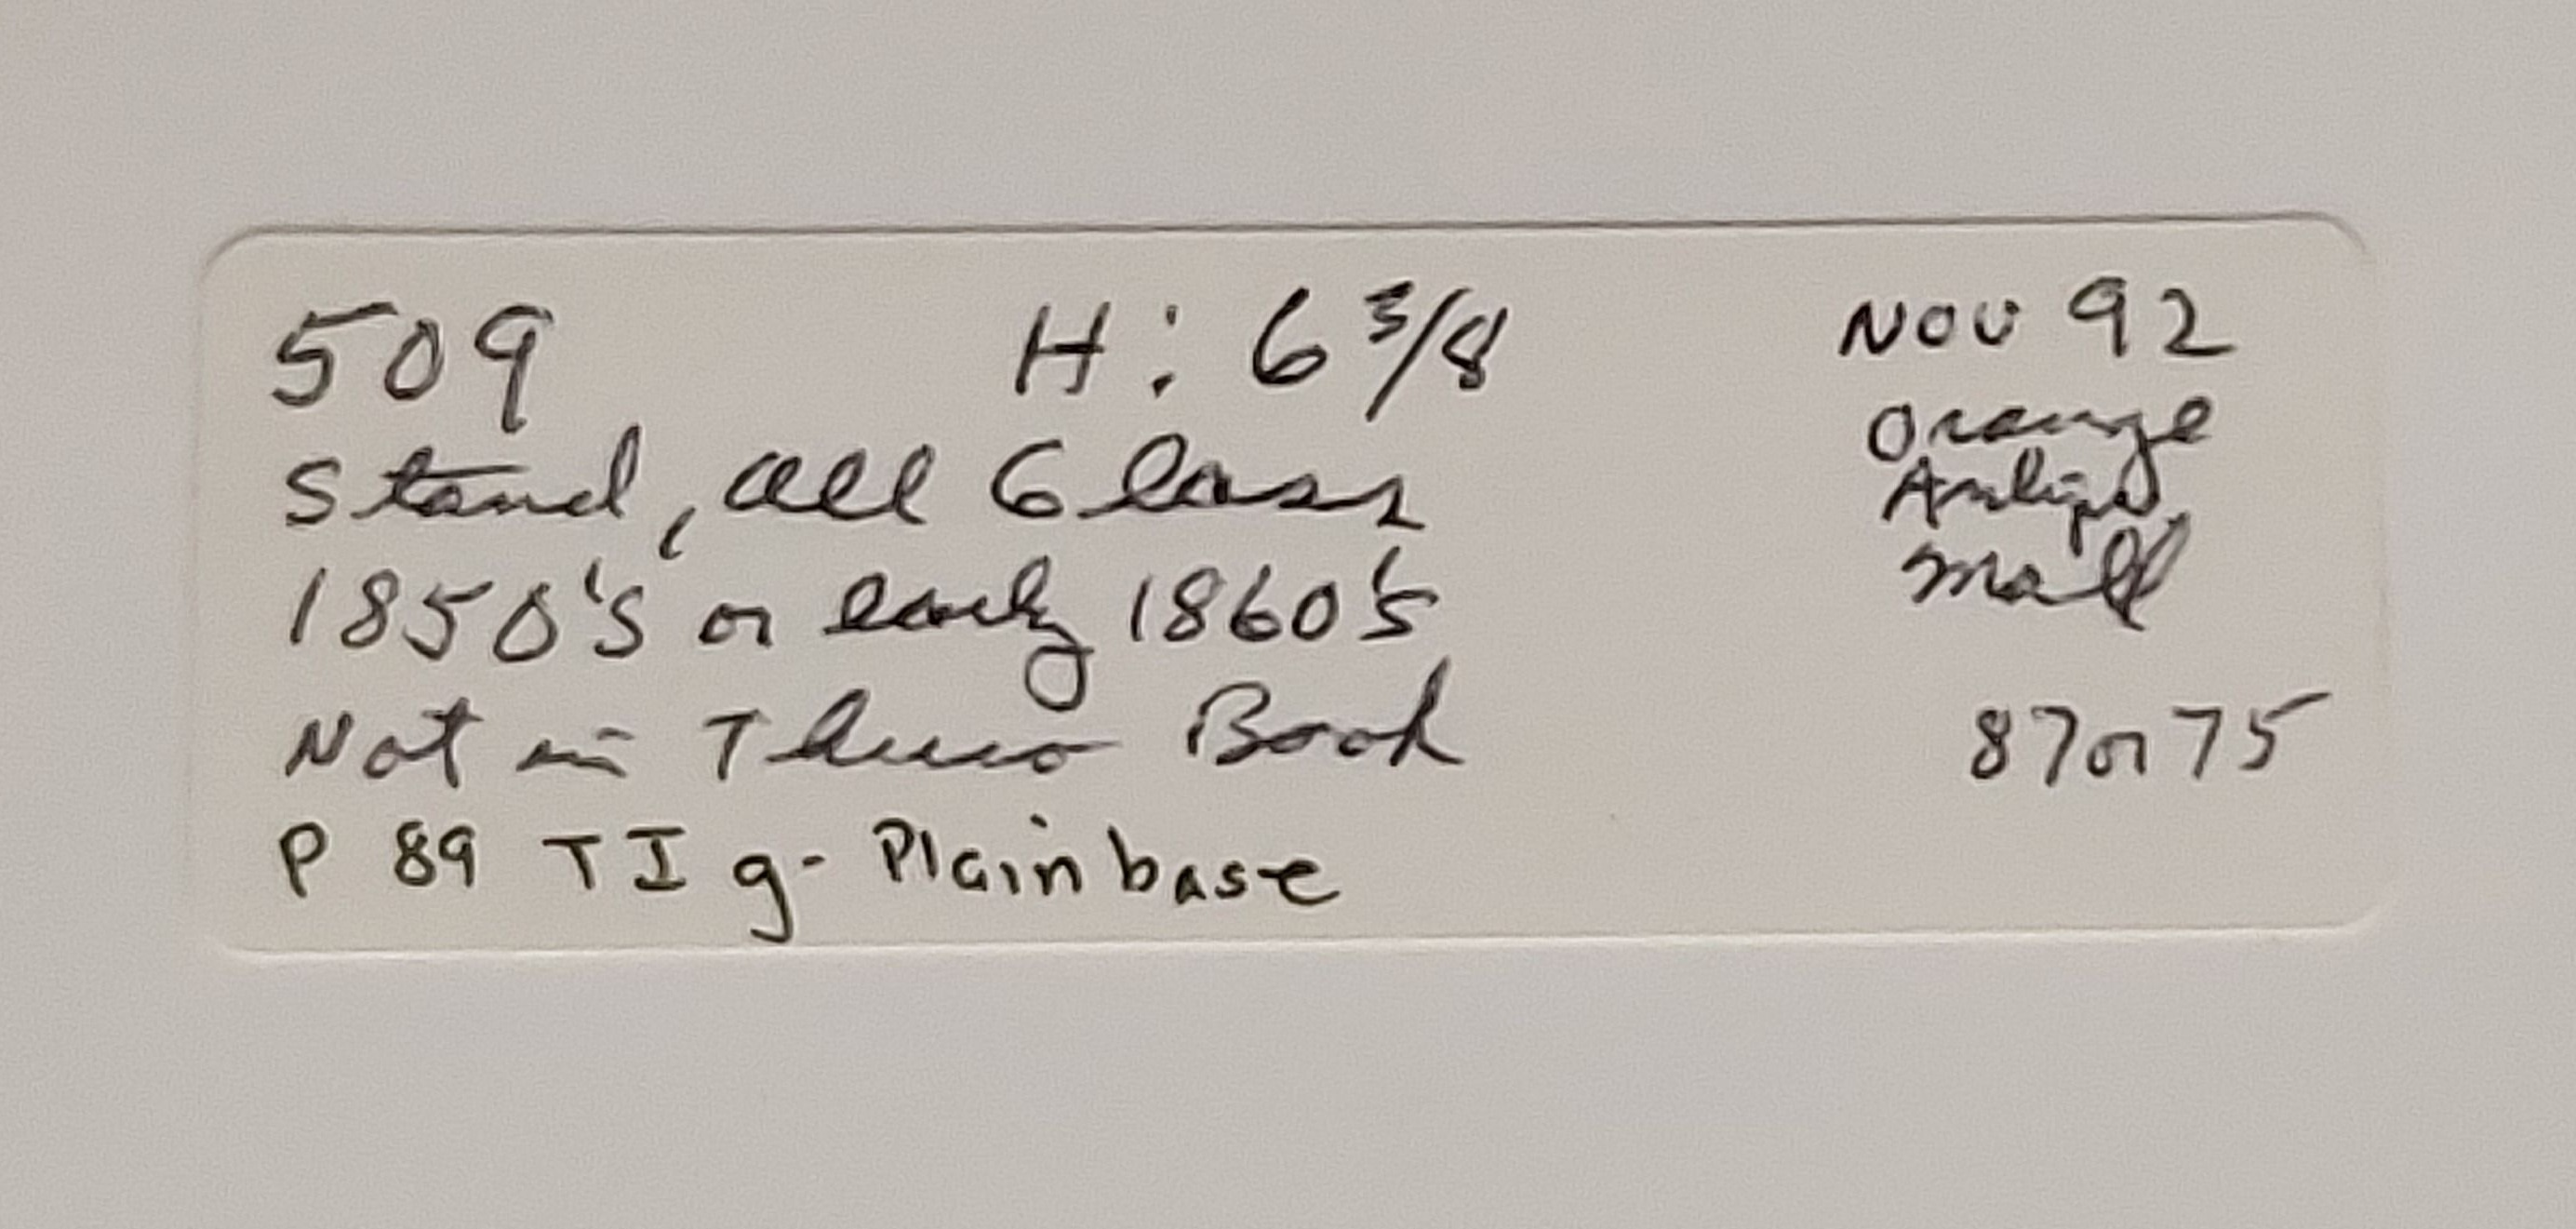 509 H: 6 3/8
Stand, all Glass
1850's or early 1860's
Not in Thuro Book
P 89 TI g- Plain base
NOV 92
Orange
Antique
Mall
87 or 75